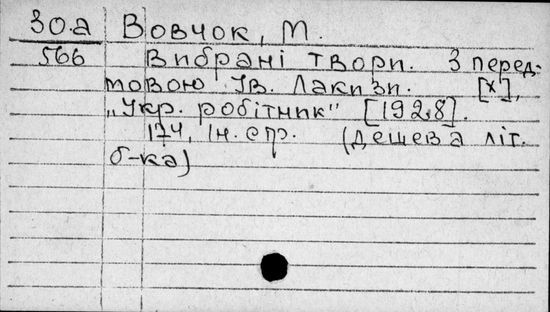 30.а Вовчок, М.
566 Вибрані твори. З перед-
мовою Ів. Лакизи. [Х],
„Укр. робітник" [1928].
174, Ін. стр. (Дешева літ.
б-ка)